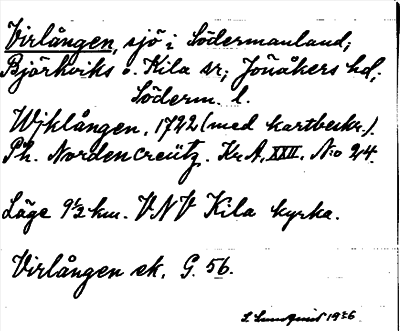 Virlången, sjö i Södermanland;
Björkviks o. Kila sr; Jönåkers hd;
Söderm. l.
Wjklången, 1722 (med kartbeskr.).
Ph. Nordencreütz. Kr A, XXII. N:o 24.
Läge 9½ km. VNV Kila kyrka.
Virlången ek. G. 56.
Lundqvist 1926.